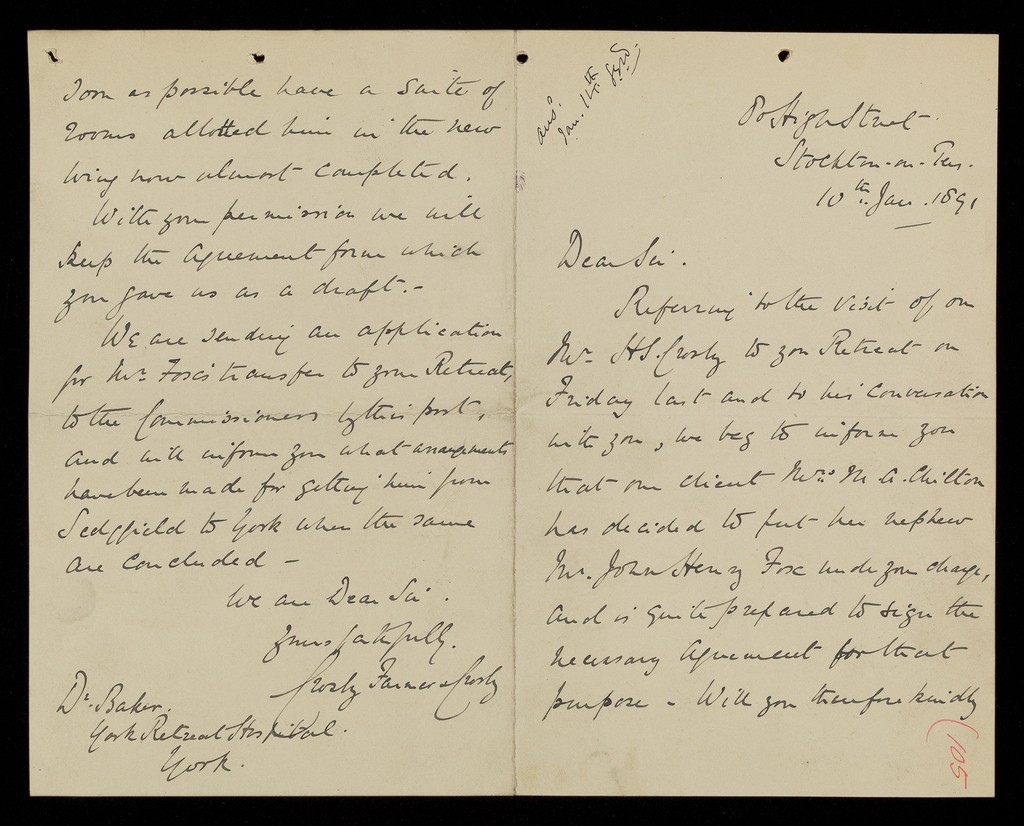 ansd.
Jan. 14th
80 High Street.
Stockton-on-Tees.
10th Jan. 1891
Dear Sir.
Referring to the visit of our
Mr. H S. Crosby to your Retreat on
Friday last and to his conversation
with you, we beg to inform you
that our client Mrs. M. A. Chilton
has decided to put her nephew
Mr. John Henry Fox under your charge,
and is quite prepared to sign the
necessary Agreement for that
purpose - Will you therefore kindly
(105
soon as possible have a suite of
rooms allotted him in the new
wing now almost completed.
With your permission we will
keep the Agreement form which
you gave us as a draft.-
We are sending an application
for Mr. Fox's transfer to your Retreat,
to the Commissioners by this post,
and will inform you what arrangements
have been made for getting him from
Sedgfield to York when the same
are concluded -
We are Dear Sir.
Yours faithfully.
Crosby Farmer & Crosby
Dr. Baker.
York Retreat Hospital.
York.